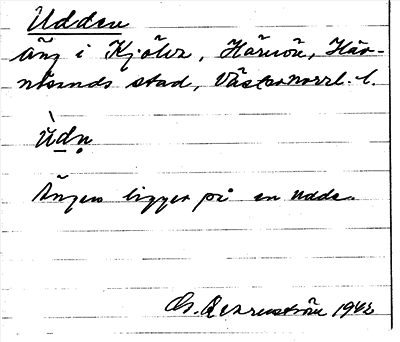 Udden
Äng i Kjölvr, Härnön, Här-
nösands stad, Västernorrl. l.
ùdn̥
Ängen ligger på en udde.
1942